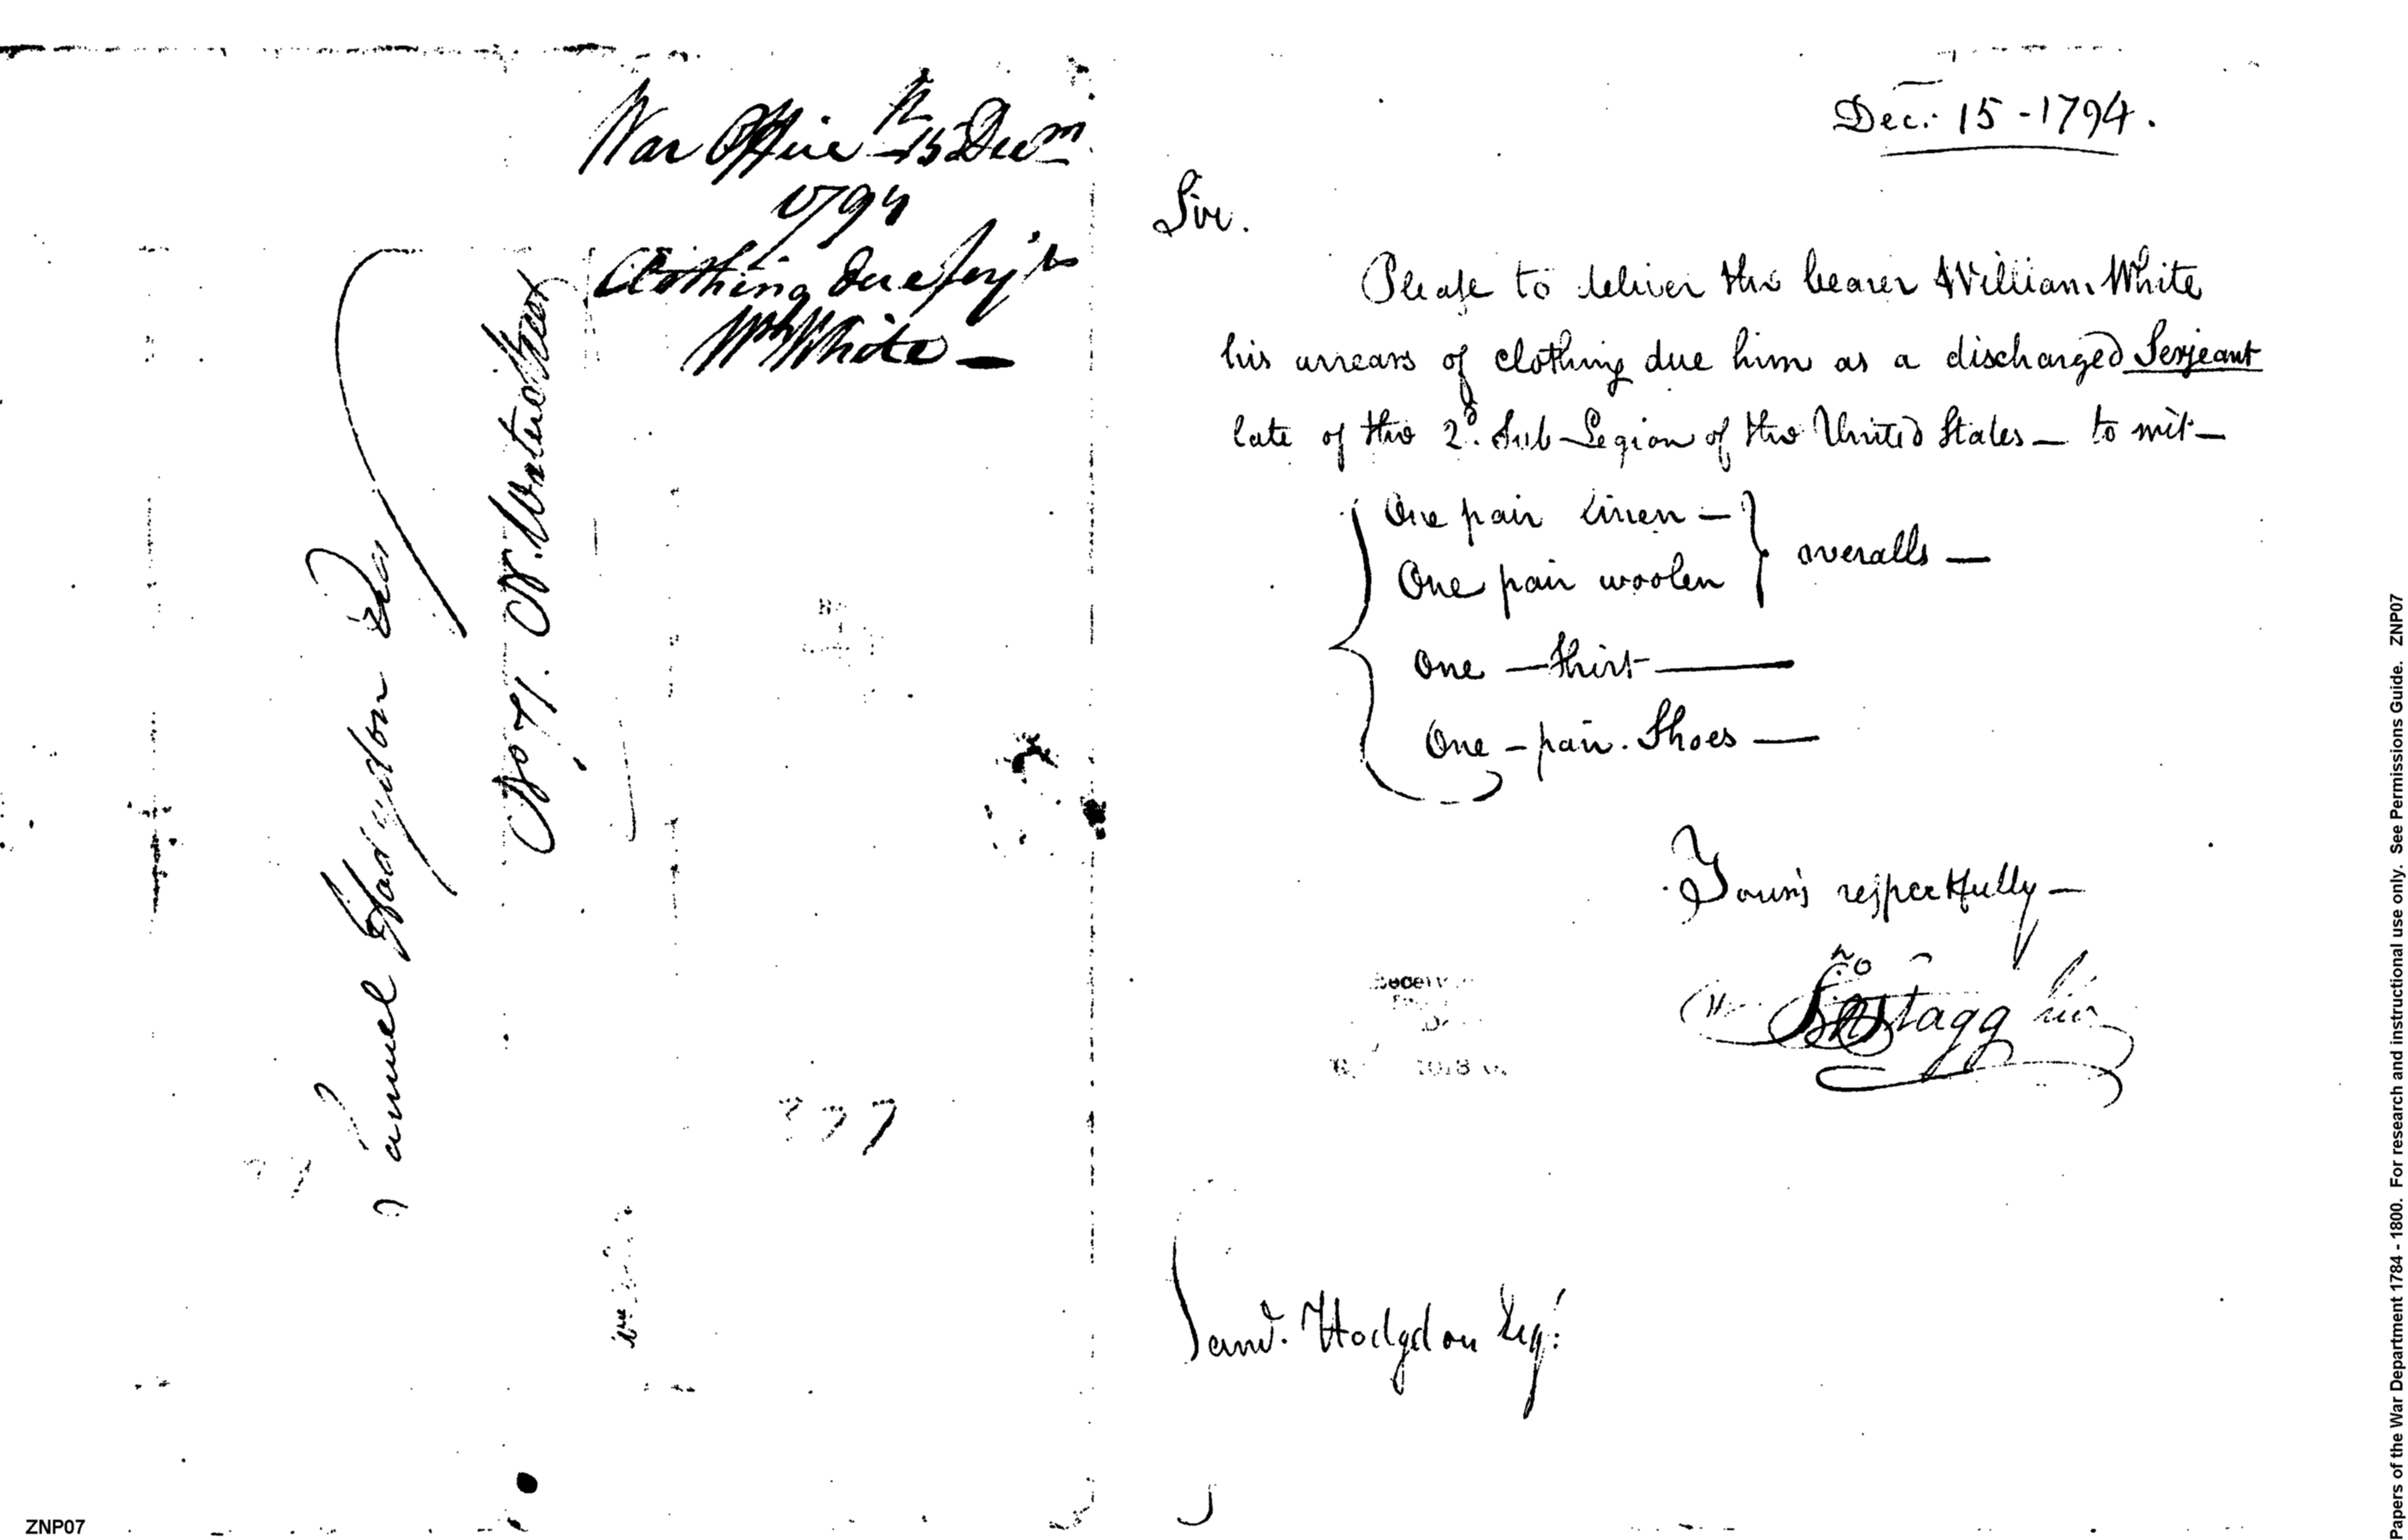 War Office 15 Decm
1794
Clothing due Serj't
Wm White —
Samuel Hodgdon Esq
N. Waterhouse
277
Dec.r 15 - 1794.
Sir.
Please to deliver the bearer William White
his arrears of clothing due him as a discharged Serjeant
late of the 2d. Sub Legion of the United States — to wit —
One pair linen — } overalls —
One pair woolen
One — Shirt —
One - pair. Shoes —
Yours respectfully —
Jno Stagg Jur
Saml. Hodgdon Esqr.
ZNP07
Papers of the War Department 1784 - 1800. For research and instructional use only. See Permissions Guide. ZNP07